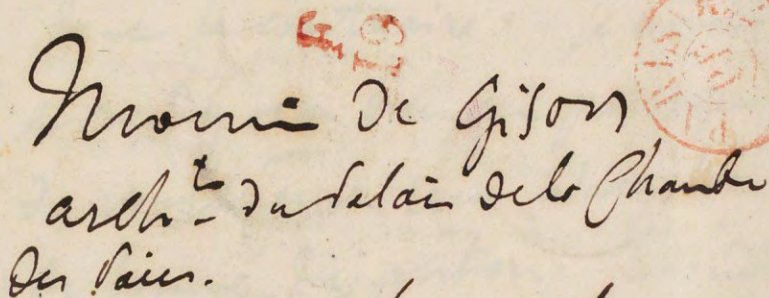 Monsieur de Gisors
archte du Palais de la Chambre
des Pairs.